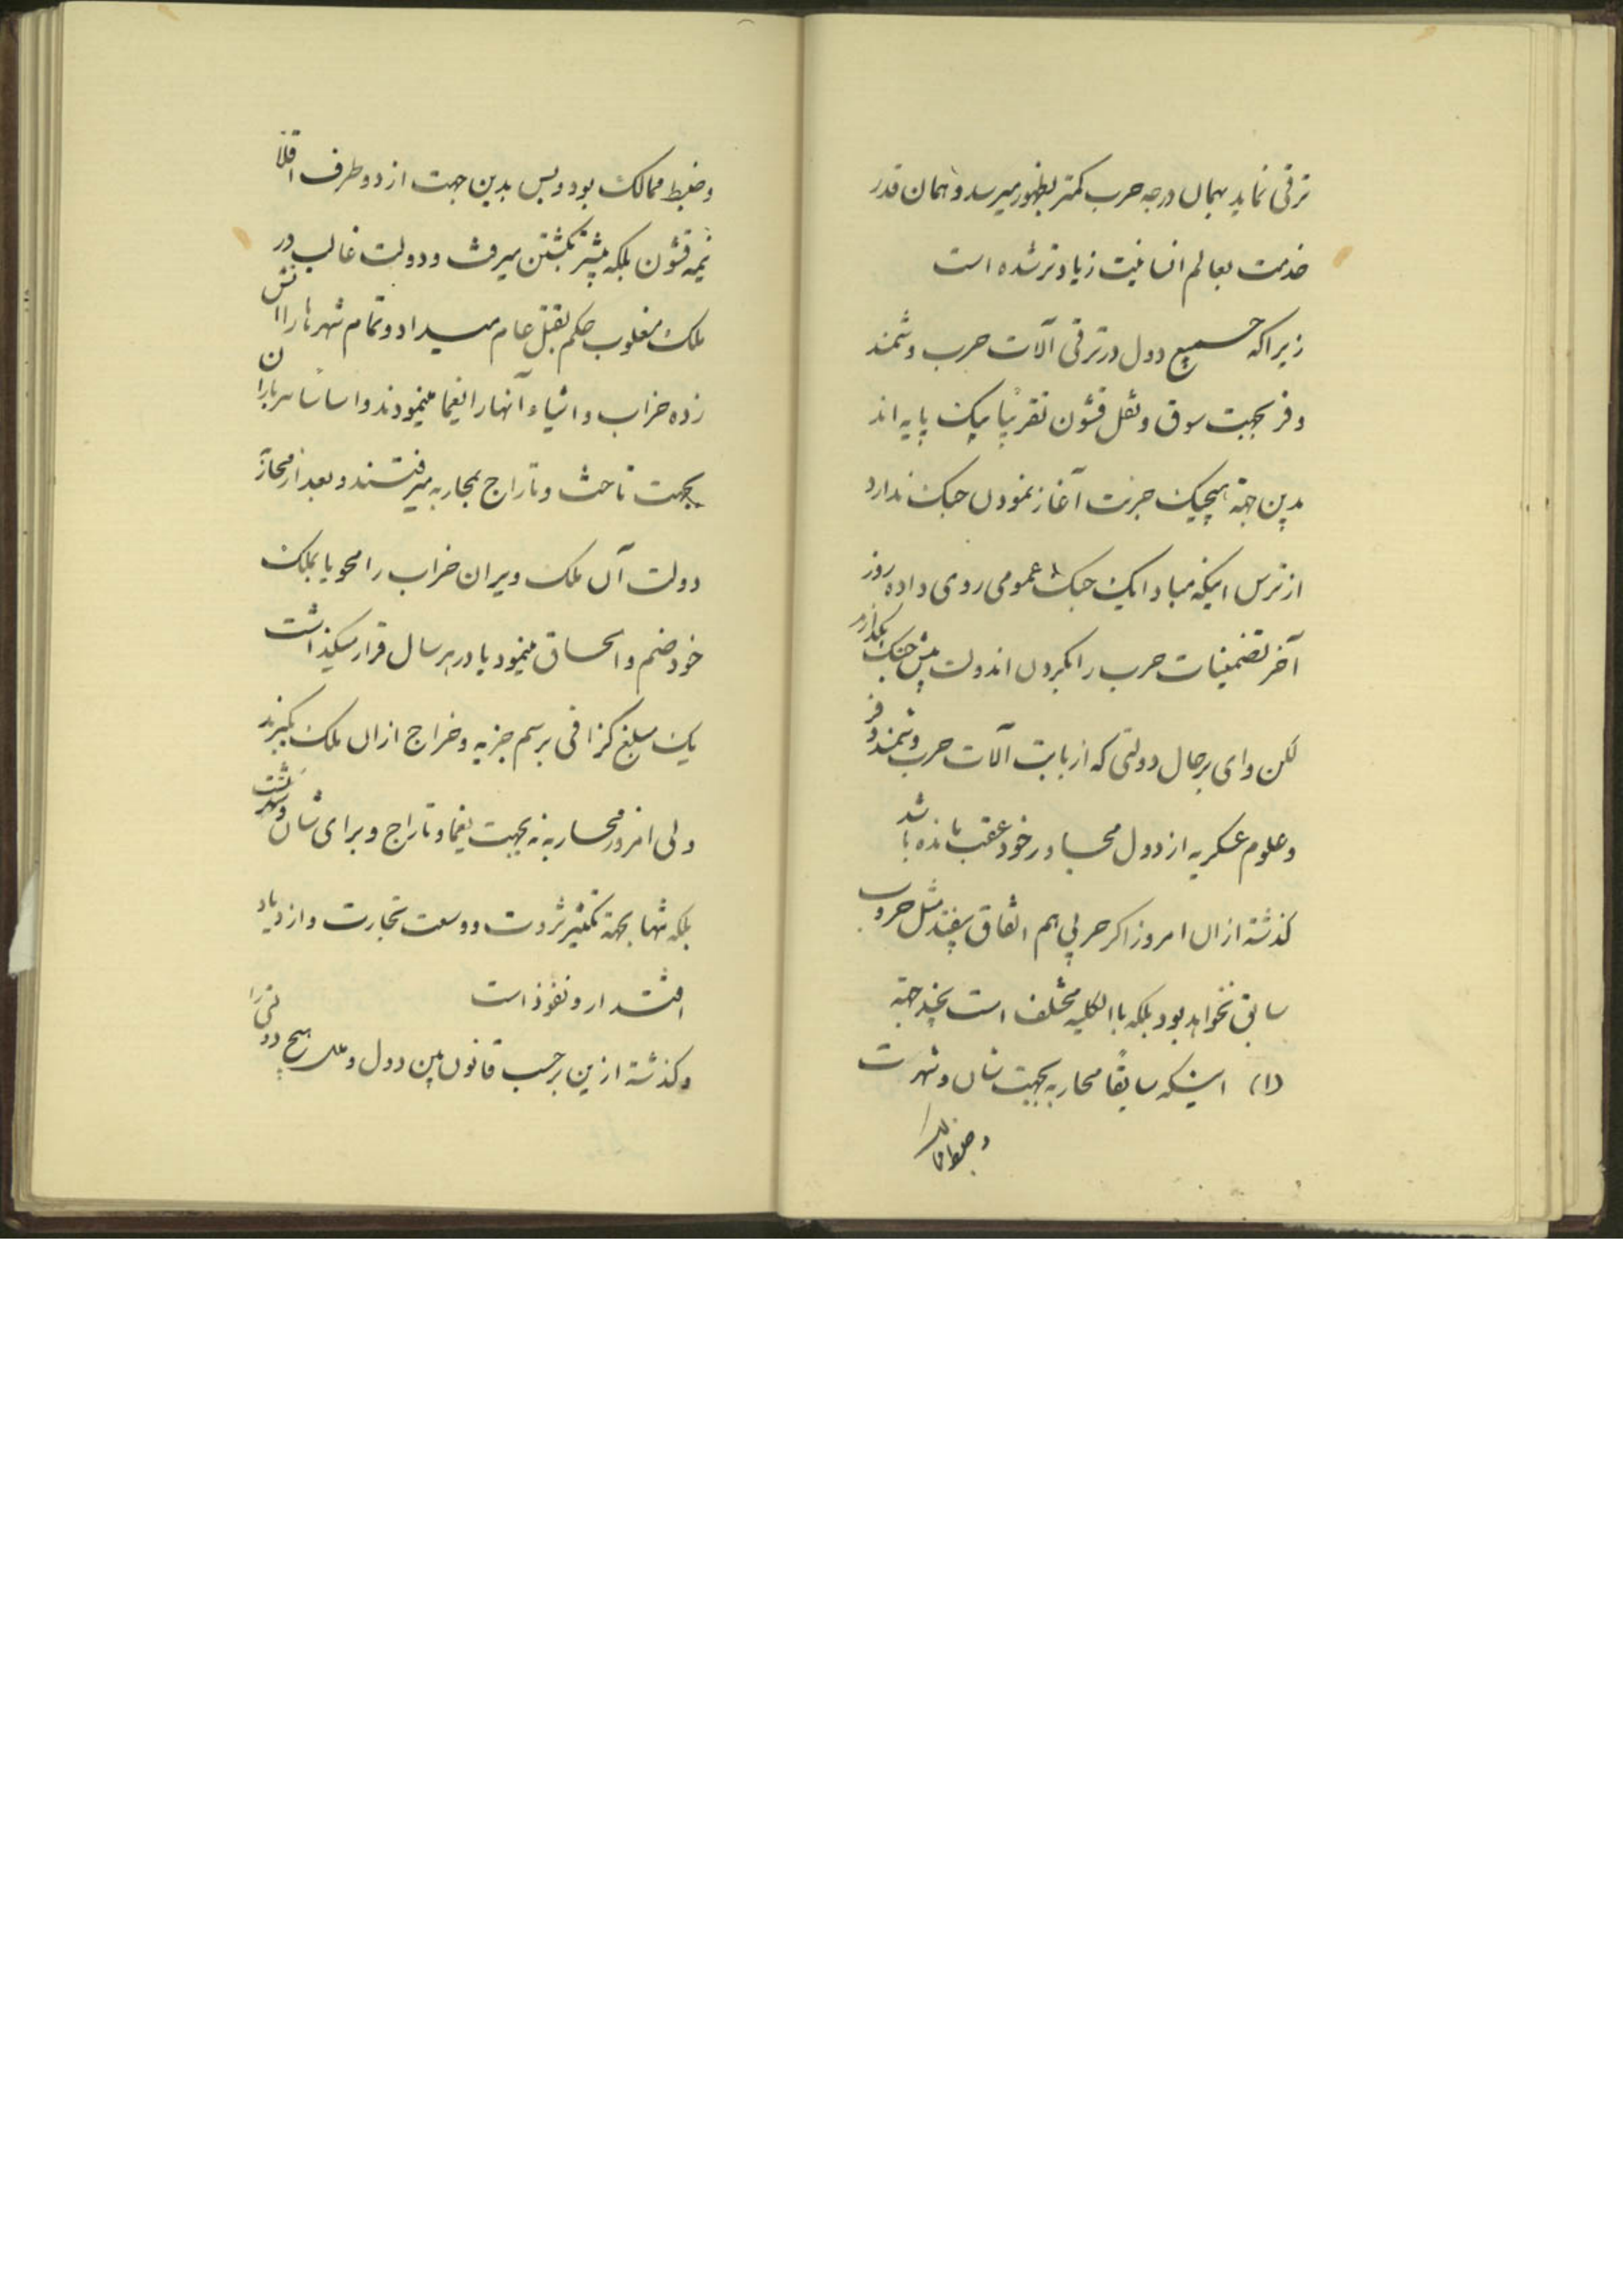 ترقی نماید بهمان درجه حرب کمتر بظهور میرسد و همان قدر
خدمت بعالم انسانیت زیادتر شده است
زیرا که جمیع دول در ترقی آلات حرب و شمند
وفر بجهت سوق و نقل قشون تقریباً بیک پایه اند
بدین جهة هیچیک جرئت آغاز نمودن جنک ندارد
از ترس اینکه مبادا یک جنک عمومی روی داده روز
آخر تضمینات حرب را بگردن اندولت پیش جنک بگذارد
لکن وای برحال دولتی که از بابت آلات حرب و شمندوفر
و علوم عسکریه از دول مجاور خود عقب مانده باشد
گذشته ازان امروز اکر حربی هم اتفاق بیفتد مثل حروب
سابق نخواهد بود بلکه باالکلیه مختلف است بچند جهة
(۱) اینکه سابقاً محاربه بجهت شان و شهرت
و ضبط ممالک
و ضبط ممالک بود و بس بدین جهت از دو طرف اقلا
نیمه قشون بلکه بیشتر بکشتن میرفت و دولت غالب در
ملک مغلوب حکم بقتل عام میداد و تمام شهرها را اتش
زده خراب و اشیاء آنها را یغما مینمودند و اساسا سربازان
بجهت تاخت و تاراج بمحاربه میرفتند و بعد از محاربه
دولت آن ملک ویران خراب را محو یا بملک
خود ضم و الحاق مینمود یا در هر سال قرار میگذاشت
یک مبلغ کزافی برسم جزیه و خراج ازان ملک بگیرند
ولی امروز محاربه نه بجهت یغما و تاراج و برای شان و شهرتست
بلکه تنها بجهة تکثیر ثروت و وسعت تجارت و ازدیاد
اقتدار و نفوذ است
و گذشته ازین برحسب قانون بین دول و ملل هیچ دولتی را